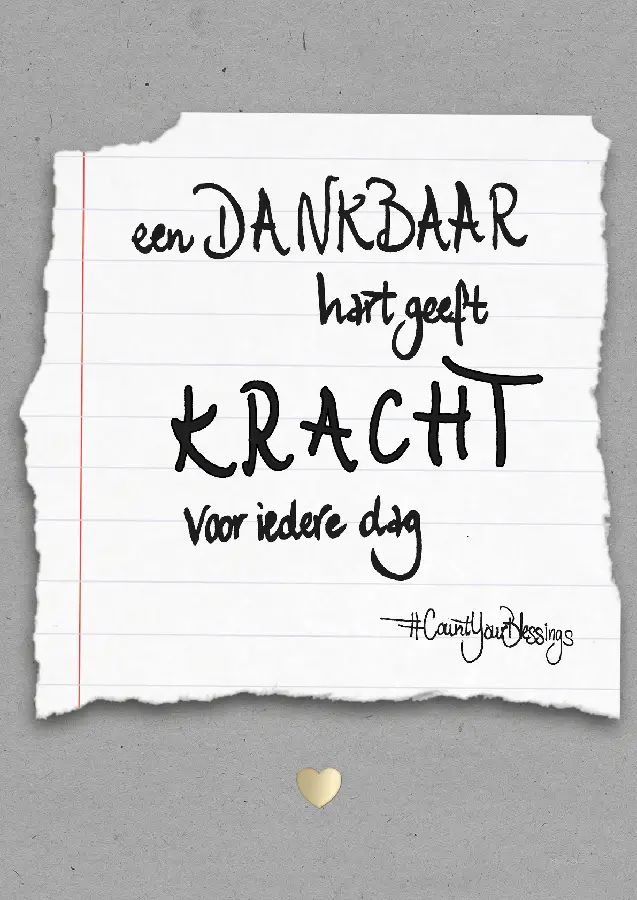 een DANKBAAR
hart geeft
KRACHT
voor iedere dag
#CountYourBlessings